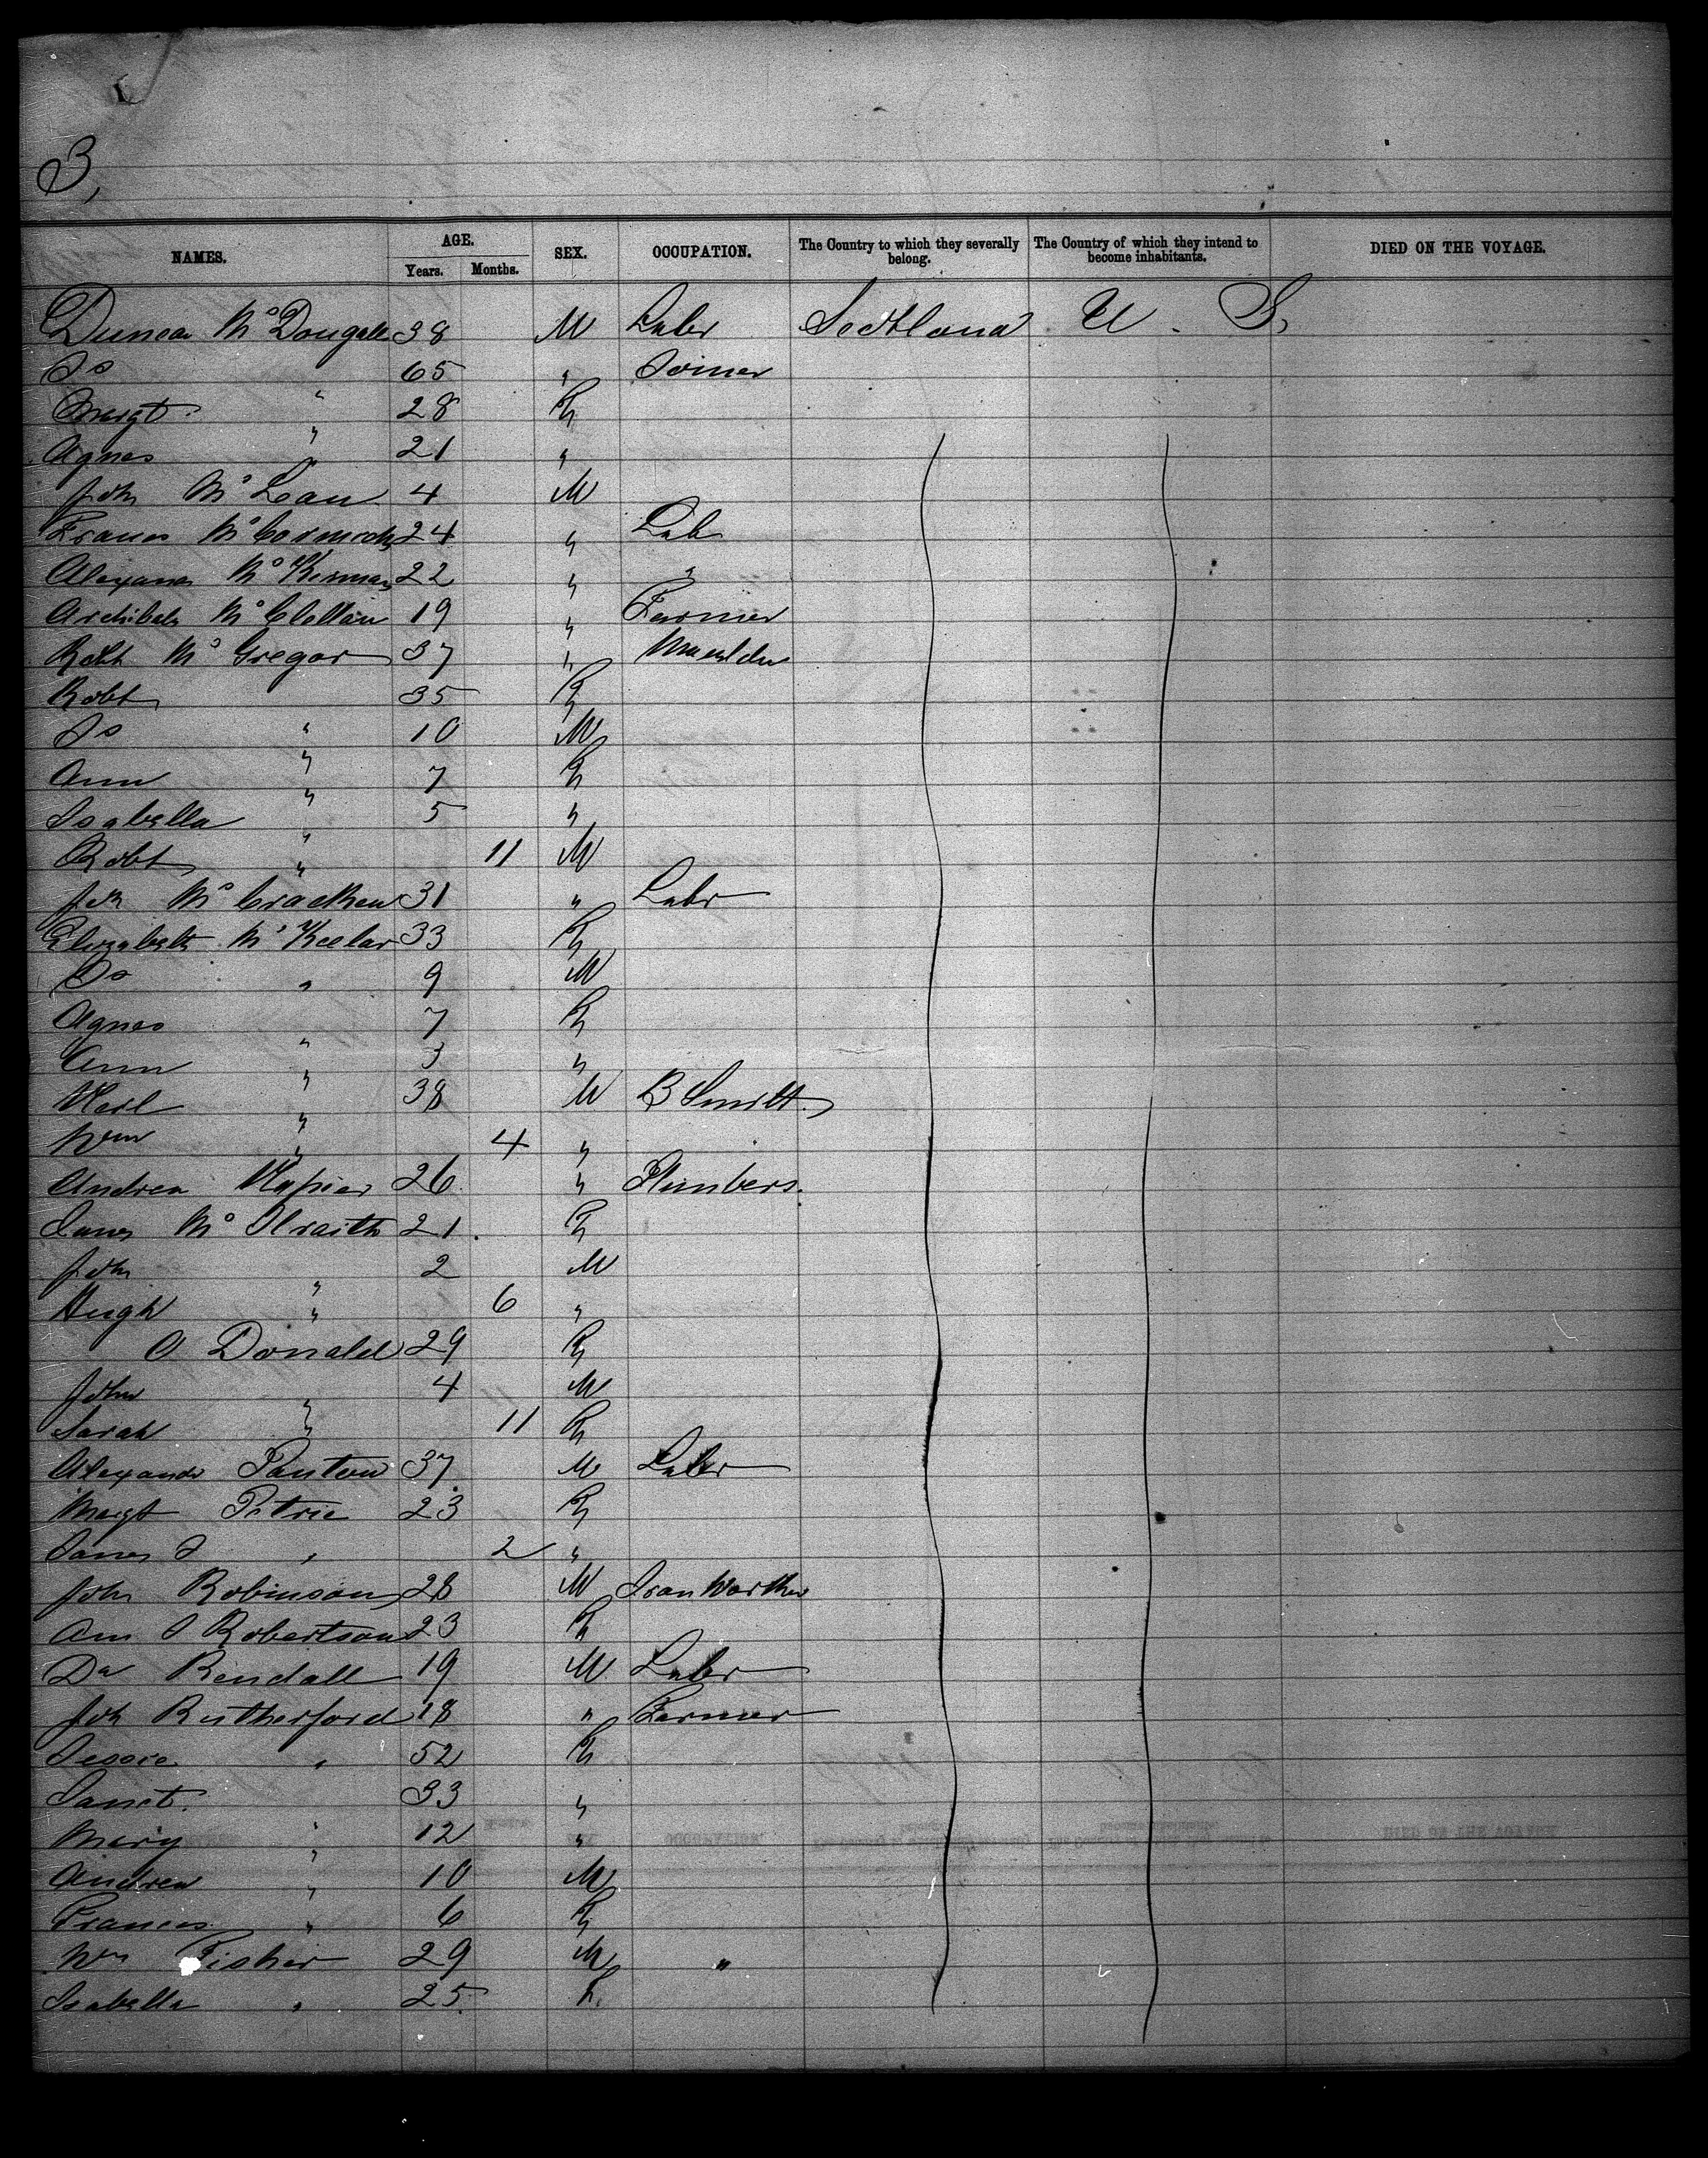 3,
NAMES. AGE. SEX. OCCUPATION. The Country to which they severally belong. The Country of which they intend to become inhabitants. DIED ON THE VOYAGE.
Years. Months.
Duncan Mc Dougall 38 M Labr Scotland U. S.
Do " 65 " Joiner
Margt " 28 F
Agnes " 21 "
John Mc Lean 4 M
Frances Mc Cormick 24 " Lab
Alexander Mc Kinnan 22 " "
Archibald Mc Clellan 19 " Farmer
Robt Mc Gregor 37 " Moulder
Robt 35 F
Do " 10 M
Ann " 7 F
Isabella " 5 "
Robt " 11 M
Joh Mc Cracken 31 " Labr
Elizabeth Mc Keelar 33 F
Do " 9 M
Agnes " 7 F
Ann " 3 "
Neil " 38 M B Smith
Wm " 4 "
Andrew Napier 26 " Plumbers.
Janes Mc Ilraith 21 F
John " 2 M
Hugh " 6 "
O Donald 29 F
John " 4 M
Sarah " 11 F
Alexandr Panton 37 M Labr
Margt Petrie 23 F
James J " 2 "
John Robinson 28 M Iron Worker
Ann J Robertson 23 F
Dd Rendall 19 M Labr
Joh Rutherford 18 " Farmer
Jessie " 52 F
Janet. 33 "
Mary " 12 "
Andrew " 10 M
Frances " 6 F
Wm Fisher 29 M "
Isabella " 25 F.